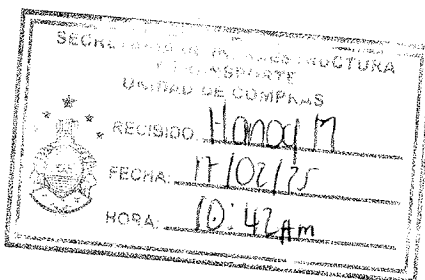 SECRETARIA DE INFRAESTRUCTURA
Y TRANSPORTE
UNIDAD DE COMPRAS
RECIBIDO: M
FECHA: 17/02/25
HORA: 10:42 Am